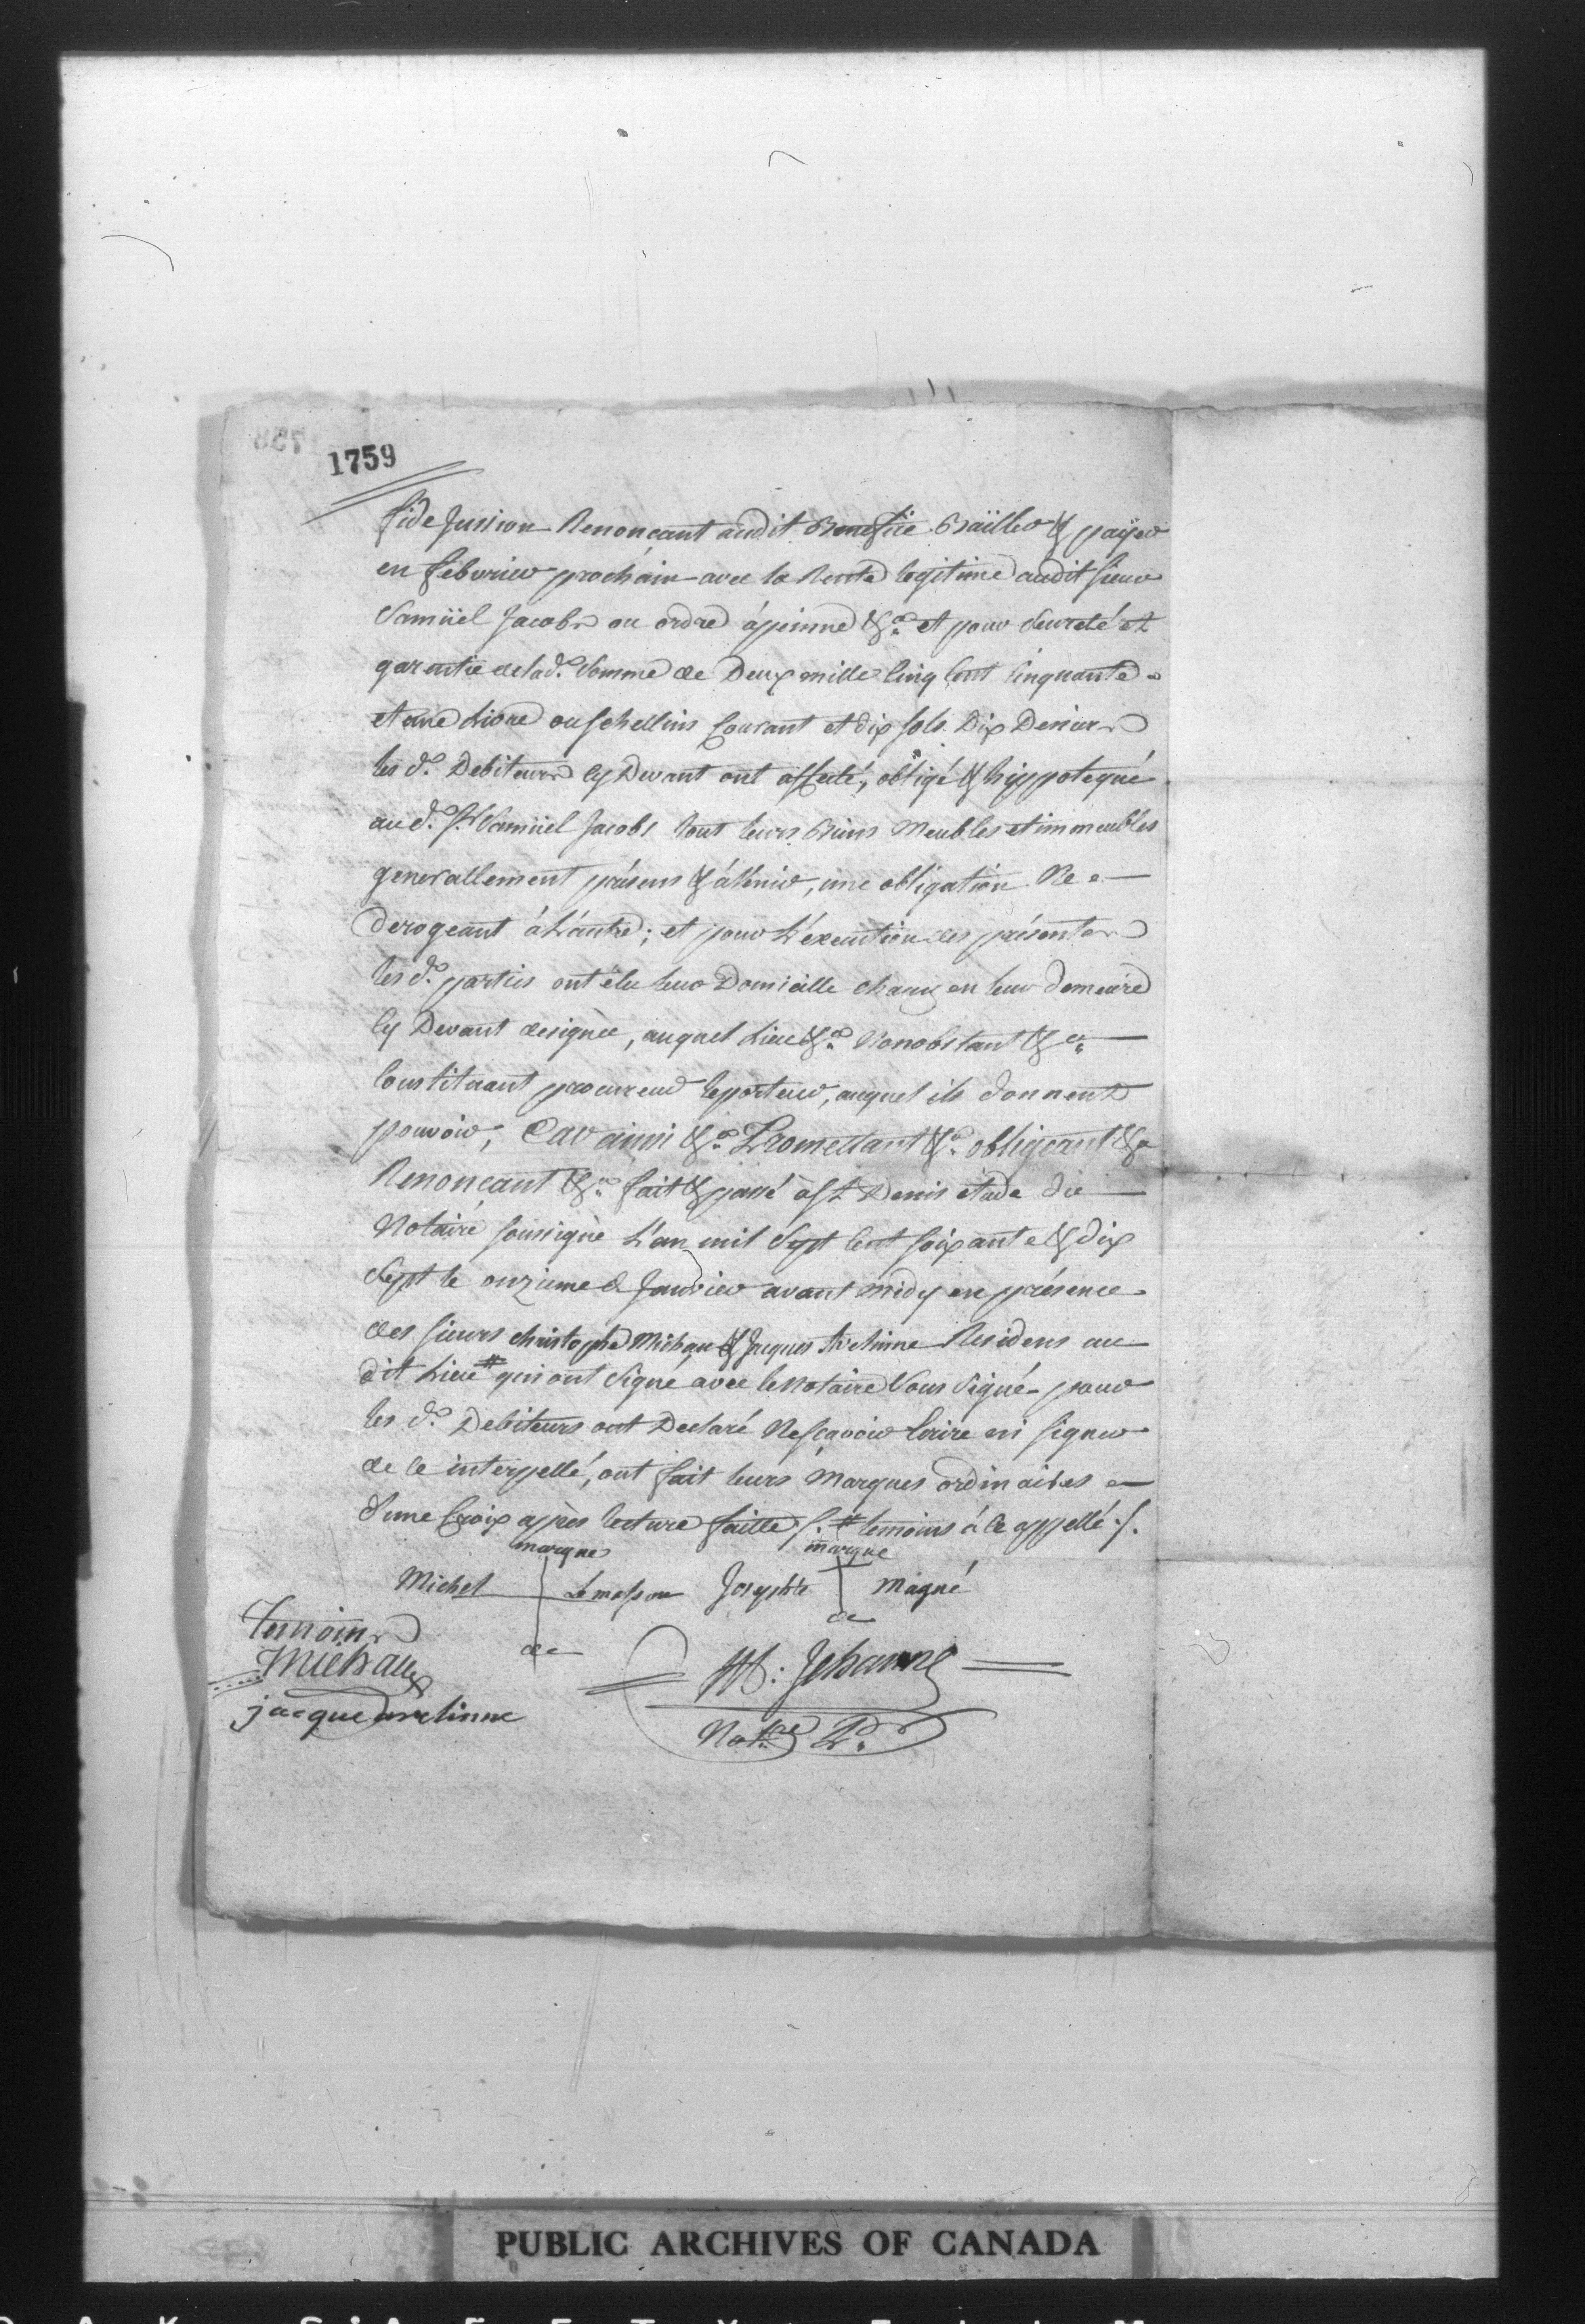 1759
fide Jussion Renonçant audit Benefice Bailler & payer
en febvrier prochain avec la Rente legitime audit Sieur
Samüel Jacobs ou ordre à peinne &a. et pour seureté et
garentie de lad.e Somme de Deux mille Cinq Cent Cinquante
et une Livre ou schellins Courant et dix sols Dix Deniers
les d.s Debiteurs Cy Devant ont affecté, obligé & hyppotequé
au d.t Sr. Samüel Jacobs tout leurs Biens Meubles et immeubles
generallement présens & à Venir, une obligation Ne
Derogeant à L'autre; et pour L'execution des présentes
les d.s parties ont élu leur Domicille chacun en leur demeure
Cy Devant designée, auquel Lieu &a. Nonobstant &a.
Constituant procureur le porteur, auquel ils donnent
pouvoir, Car ainsi &a. Promettant &a. obligeant &a
Renonçant &a. fait & passé à St Denis étude du
Notaire soussigné L'an mil Sept Cent soixante & dix
Sept le onzieme de Janvier avant midy en présence
des sieurs christophe Michau & Jacques Residens au
dit Lieu # qui ont Signé avec le Notaire Sous Signé pour
les d.s Debiteurs ont Declaré Ne sçavoir Ecrire ni signer
de ce interpellé, ont fait leurs Marques ordinaires
d'une Croix après lecture faitte /. # temoins à ce appellé ./.
marque marque
Michel Lemasson Joseph Magné
de de
Temoins
Michau
jacque
M: Jehanne
Notre P.
PUBLIC ARCHIVES OF CANADA